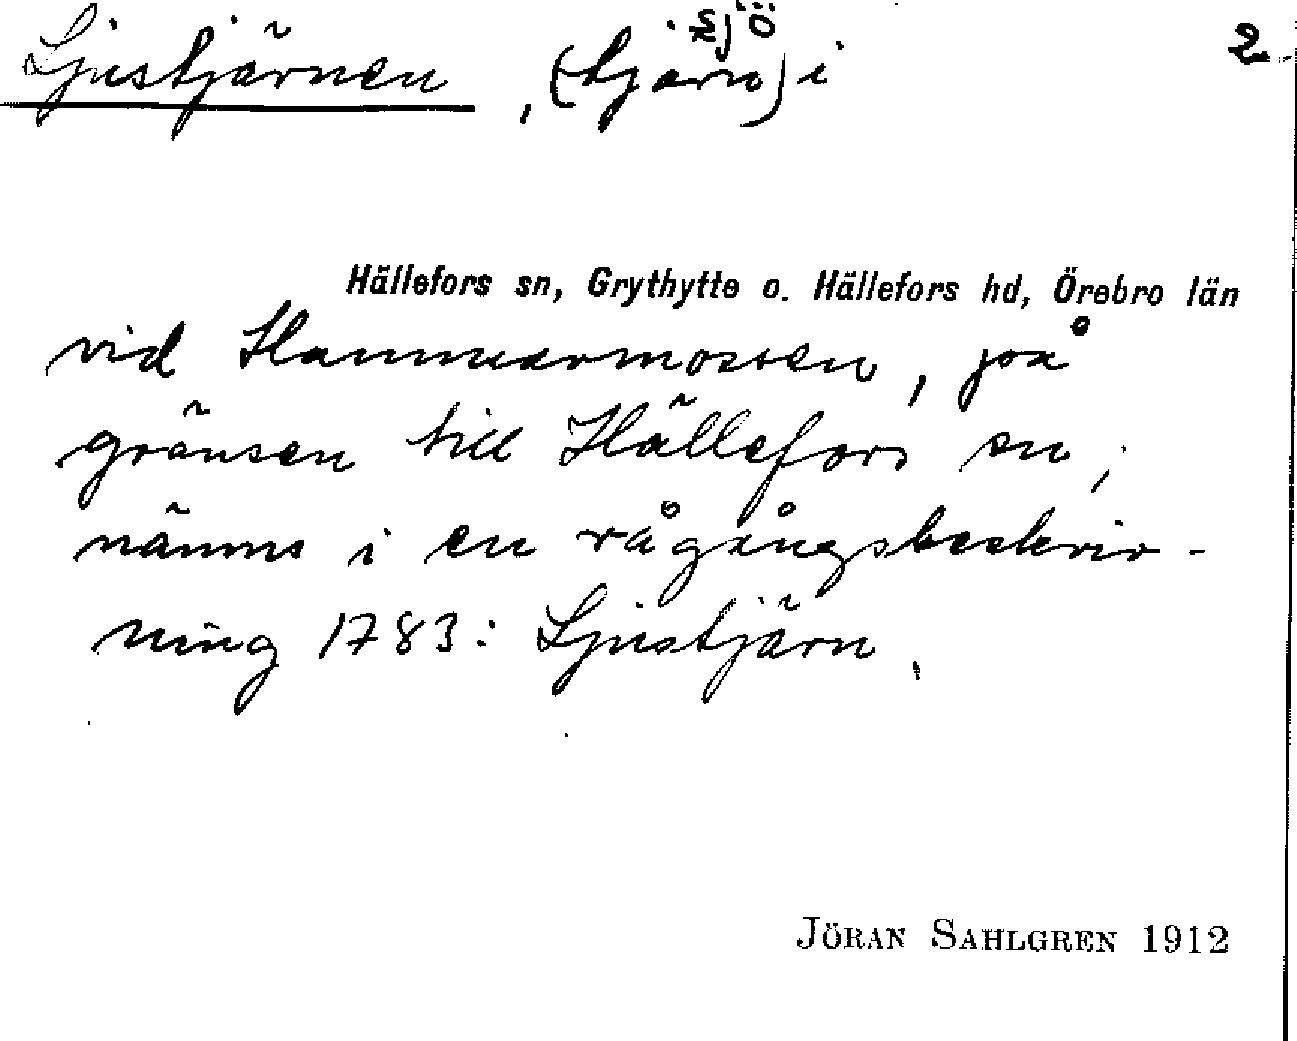 sjö
Ljustjärnen, (tjärn) i 2
Hällefors sn, Grythytte o. Hällefors hd, Örebro län
vid Hammarmossen, på
gränsen till Hällefors sn;
nämns i en rågångsbeskriv-
ning 1783: Ljustjärn.
JÖRAN SAHLGREN 1912